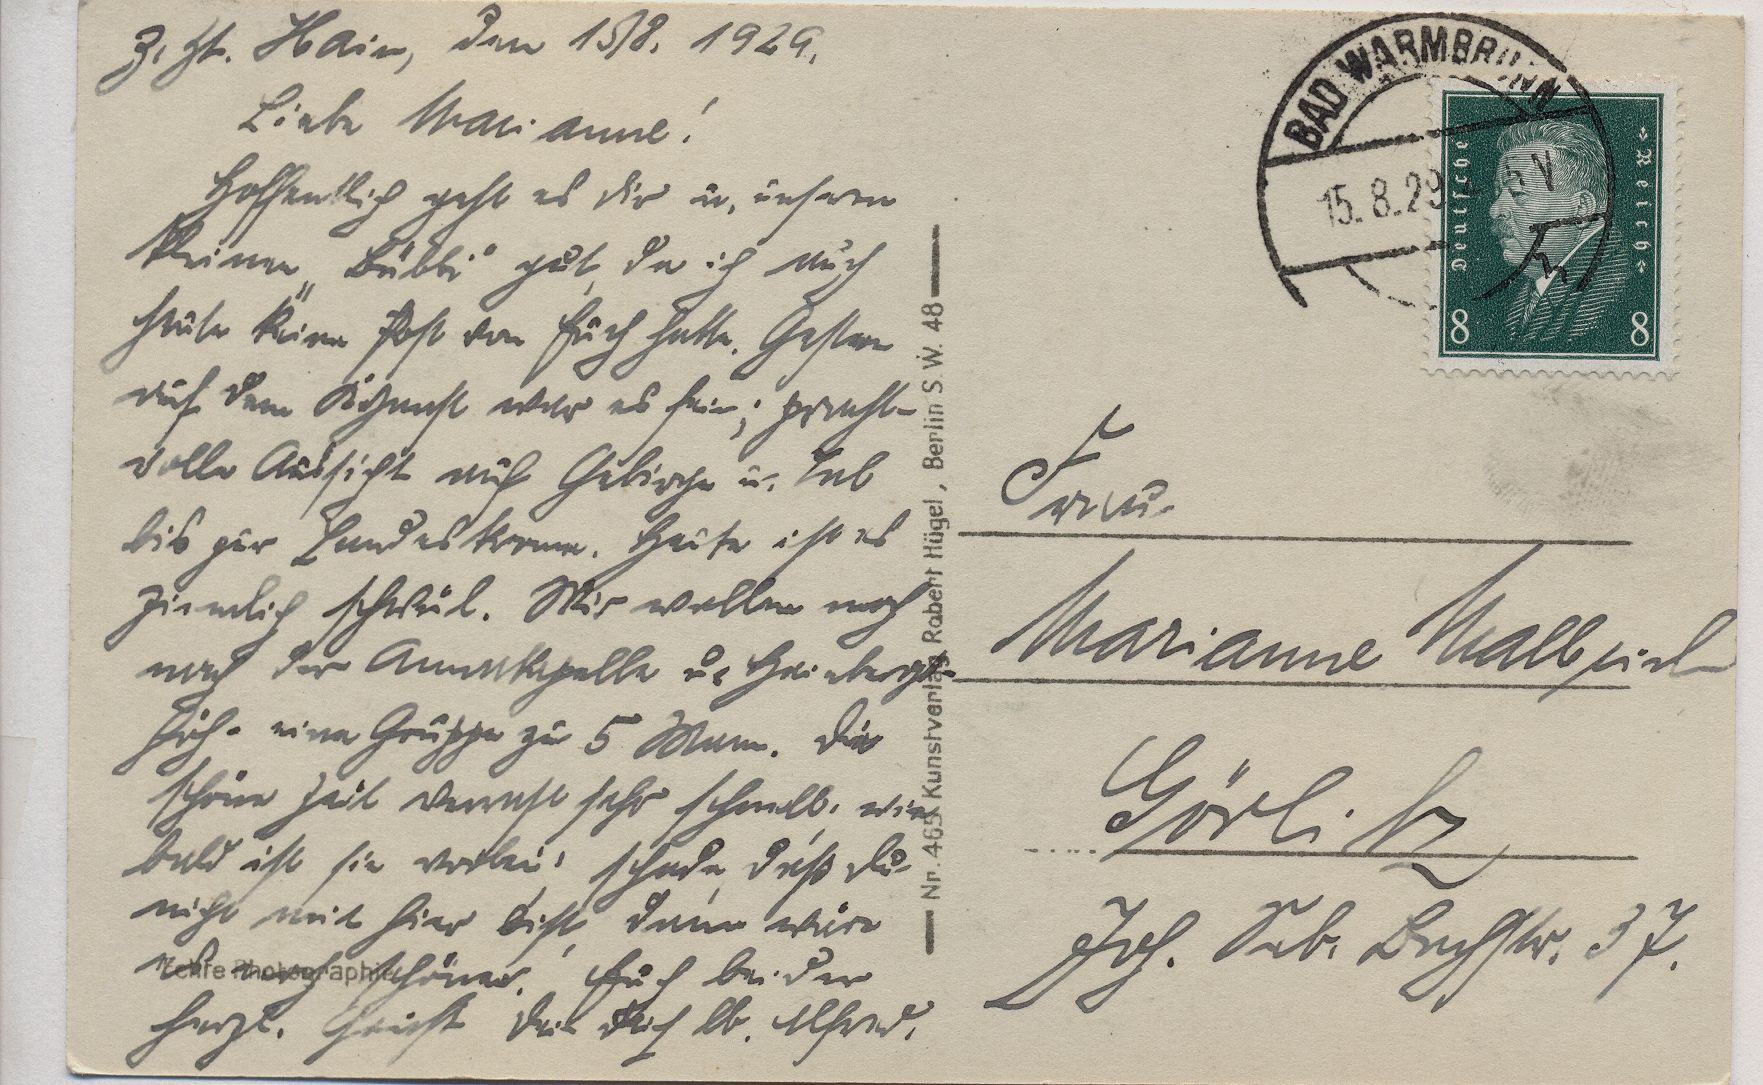 z. Zt. Hain, den 15/8. 1929.
Liebe Marianne!
Hoffentlich geht es Dir u. unserem
kleinen „Bübbi“ gut, da ich auch
heute keine Post von Euch hatte. Gestern
auf dem Kynast war es fein; pracht-
volle Aussicht auf Gebirge u. Tal
bis zur Landeskrone. Heute ist es
ziemlich schwül. Wir wollen noch
nach der Annakapelle u.
eine Gruppe zu 5 Mann. Die
schöne Zeit verrast sehr schnell, wie
bald ist sie vorbei! Schade, daß Du
nicht mit hier bist, dann wäre
es noch schöner! Euch beiden
herzl. Dein Dich lb. Alfred.
Echte Photographie
Nr. 465 Kunstverlag Robert Hügel, Berlin S.W. 48
BAD WARMBRUNN
15.8.29. V
Deutsches Reich
8 8
Frau
Marianne
Görlitz
Joh. Seb. Bachstr. 37.